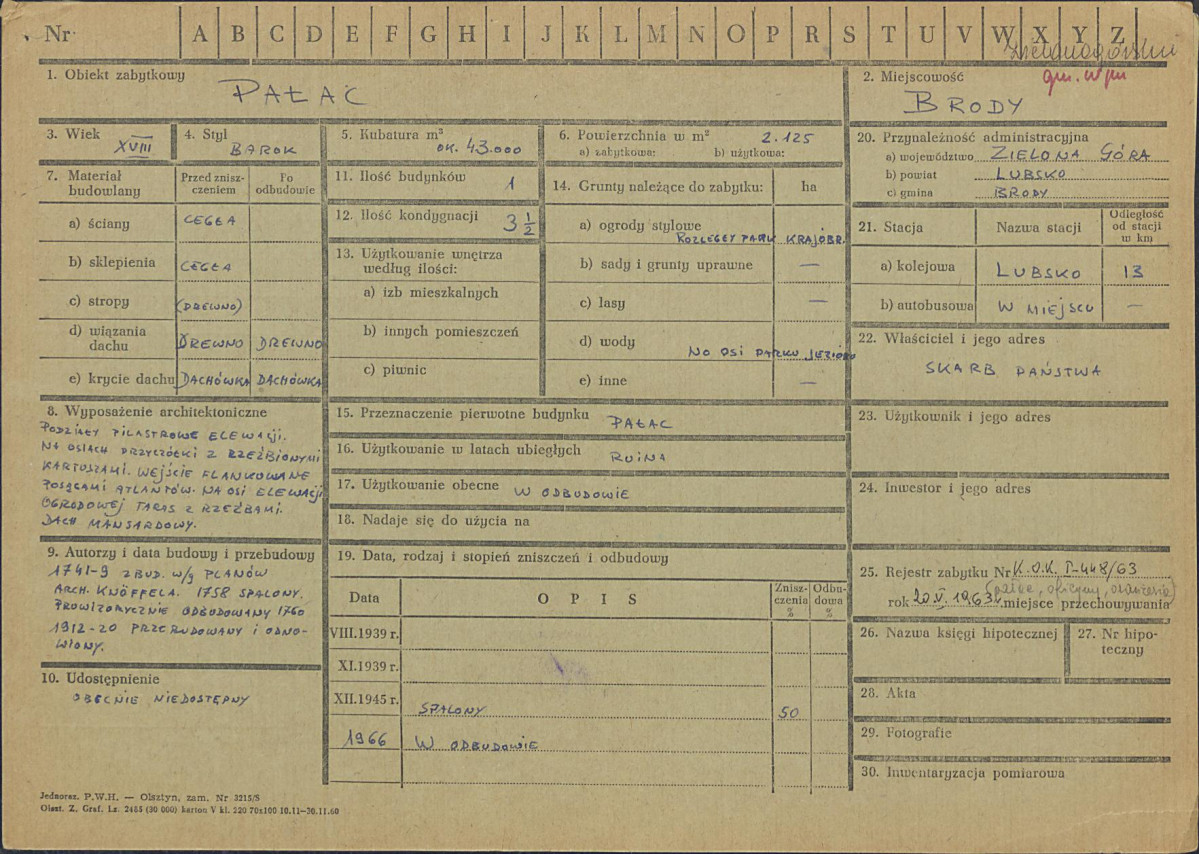 Nr A B C D E F G H I J K L M N O P R S T U V W X Y Z
zielonogórskie
1. Obiekt zabytkowy
PAŁAC
2. Miejscowość
BRODY
3. Wiek
XVIII
4. Styl
BAROK
5. Kubatura m³
OK. 43.000
6. Powierzchnia w m² 2.125
a) zabytkowa: b) użytkowa:
7. Materiał budowlany
Przed zniszczeniem
Po odbudowie
a) ściany CEGŁA
b) sklepienia CEGŁA
c) stropy (DREWNO)
d) wiązania dachu DREWNO DREWNO
e) krycie dachu DACHÓWKA DACHÓWKA
8. Wyposażenie architektoniczne
PODZIAŁY PILASTROWE ELEWACJI.
NA OSIACH PRZYCZÓŁKI Z RZEŹBIONYMI
KARTUSZAMI. WEJŚCIE FLANKOWANE
POSĄGAMI ATLANTÓW. NA OSI ELEWACJI
OGRODOWEJ TARAS Z RZEŹBAMI.
DACH MANSARDOWY.
9. Autorzy i data budowy i przebudowy
1741-9 ZBUD. W/G PLANÓW
ARCH. KNÖFFELA. 1758 SPALONY.
PROWIZORYCZNIE ODBUDOWANY 1760
1912-20 PRZEBUDOWANY I ODNO-
WIONY.
10. Udostępnienie
OBECNIE NIEDOSTĘPNY
11. Ilość budynków 1
12. Ilość kondygnacji 3 1/2
13. Użytkowanie wnętrza
według ilości:
a) izb mieszkalnych
b) innych pomieszczeń
c) piwnic
14. Grunty należące do zabytku: ha
a) ogrody stylowe
ROZLEGŁY PARK KRAJOBR.
b) sady i grunty uprawne —
c) lasy —
d) wody
NO OSI PARKU JEZIORO
e) inne —
15. Przeznaczenie pierwotne budynku PAŁAC
16. Użytkowanie w latach ubiegłych RUINA
17. Użytkowanie obecne W ODBUDOWIE
18. Nadaje się do użycia na
19. Data, rodzaj i stopień zniszczeń i odbudowy
Data OPIS Zniszczenia % Odbudowa %
VIII.1939 r.
XI.1939 r.
XII.1945 r. SPALONY 50
1966 W ODBUDOWIE
20. Przynależność administracyjna
a) województwo ZIELONA GÓRA
b) powiat LUBSKO
c) gmina BRODY
21. Stacja Nazwa stacji Odległość od stacji w km
a) kolejowa LUBSKO 13
b) autobusowa W MIEJSCU —
22. Właściciel i jego adres
SKARB PAŃSTWA
23. Użytkownik i jego adres
24. Inwestor i jego adres
25. Rejestr zabytku Nr K.O.K. I-448/63
rok 20.V.1963 miejsce przechowywania
26. Nazwa księgi hipotecznej
27. Nr hipo-
teczny
28. Akta
29. Fotografie
30. Inwentaryzacja pomiarowa
Jednoraz. P.W.H. — Olsztyn, zam. Nr 3215/S
Olszt. Z. Graf. Lz. 2485 (30 000) karton V kl. 220 70x100 10.11—30.11.60